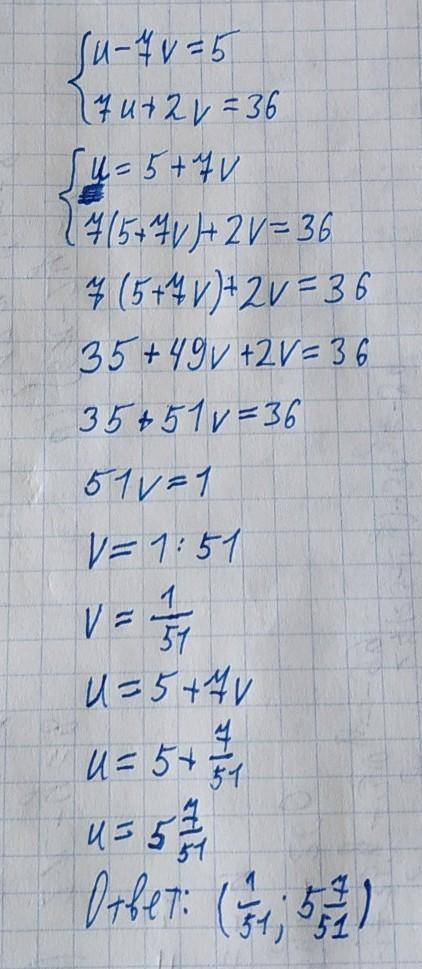 {u-7v=5
{7u+2v=36
{u=5+7v
{7(5+7v)+2v=36
7(5+7v)+2v=36
35+49v+2v=36
35+51v=36
51v=1
v=1:51
v=1/51
u=5+7v
u=5+7/51
u=5 7/51
Ответ: (1/51; 5 7/51)